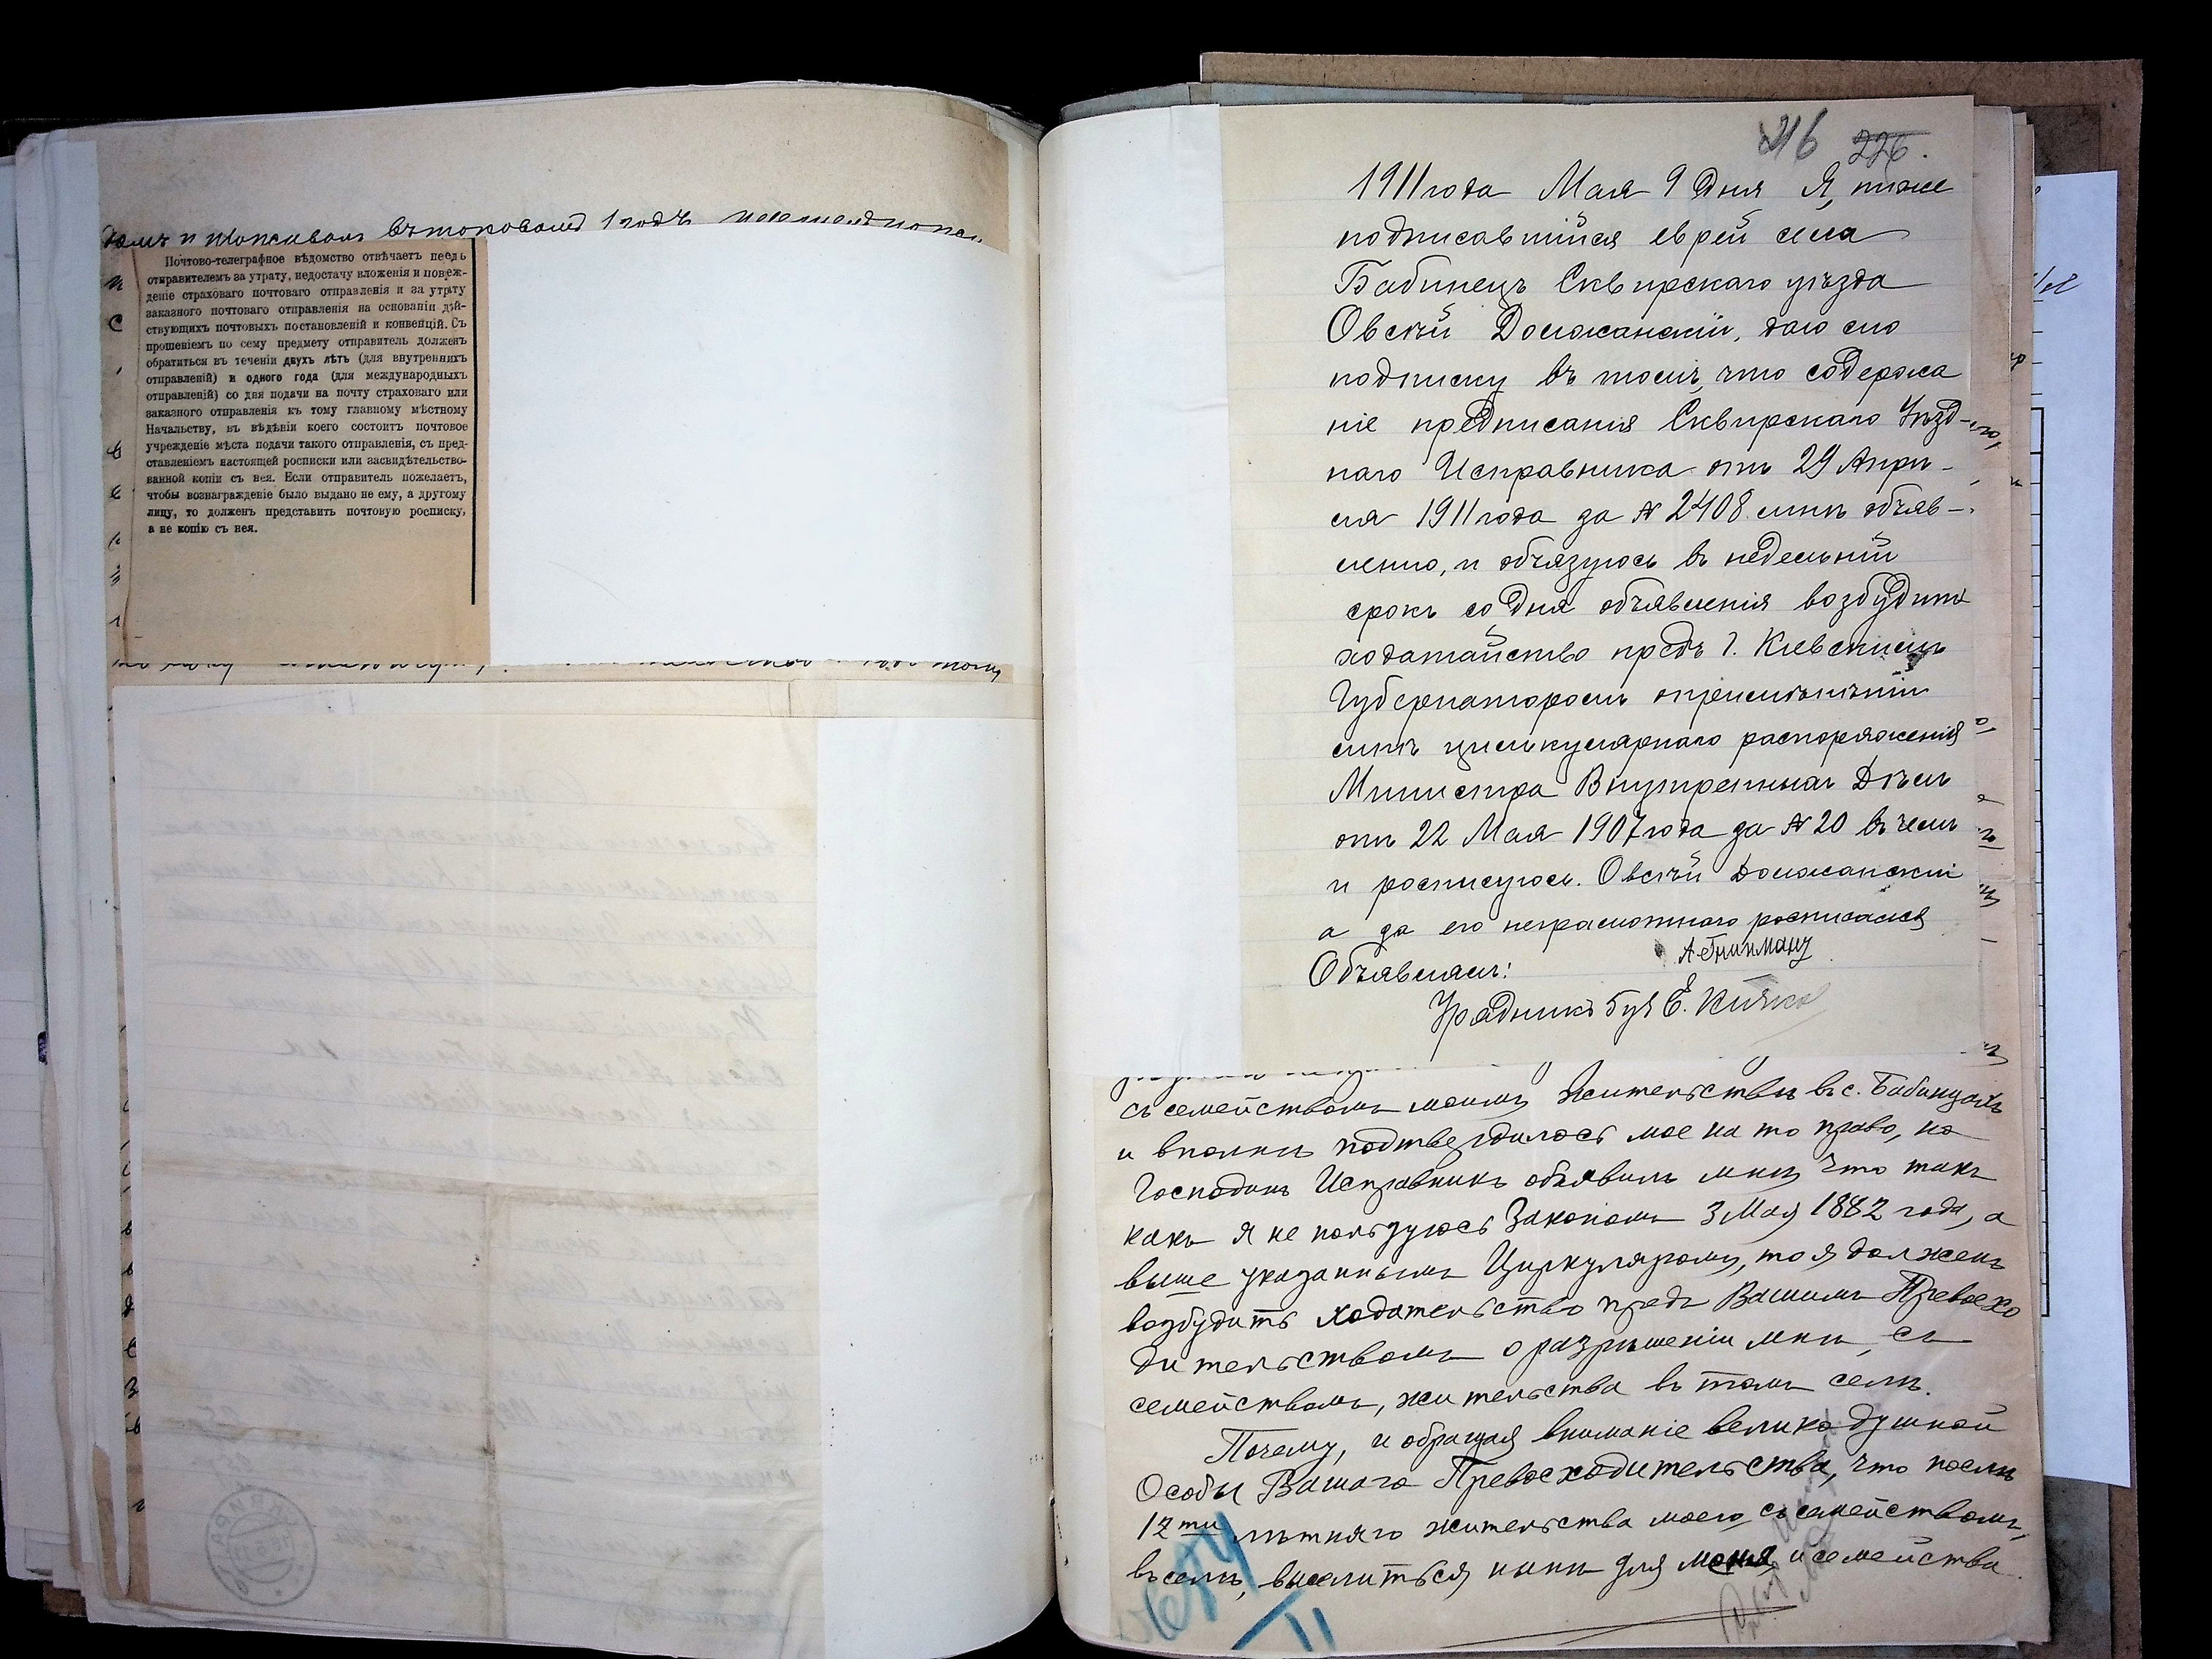 домъ и проживалъ въ таковомъ 1 годъ
Почтово-телеграфное вѣдомство отвѣчаетъ передъ
отправителемъ за утрату, недостачу вложенія и повреж-
деніе страхового почтоваго отправленія и за утрату
заказного почтоваго отправленія на основаніи дѣй-
ствующихъ почтовыхъ постановленій и конвенцій. Съ
прошеніемъ по сему предмету отправитель долженъ
обратиться въ теченіи двухъ лѣтъ (для внутреннихъ
отправленій) и одного года (для международныхъ
отправленій) со дня подачи на почту страховаго или
заказного отправленія къ тому главному мѣстному
Начальству, въ вѣдѣніи коего состоитъ почтовое
учрежденіе мѣста подачи такого отправленія, съ пред-
ставленіемъ настоящей росписки или засвидѣтельство-
ванной копіи съ нея. Если отправитель пожелаетъ,
чтобы вознагражденіе было выдано не ему, а другому
лицу, то долженъ представить почтовую росписку,
а не копію съ нея.
216 226.
1911 года Мая 9 Дня Я, ниже
подписавшійся еврей села
Бабинецъ Сквирскаго уѣзда
Овсѣй Должанскій, даю сію
подписку въ томъ, что содержа
ніе предписанія Сквирскаго Уѣзд-
наго Исправника отъ 29 Апрѣ-
ля 1911 года за № 2408 мнѣ объяв-
лено, и обязуюсь въ недельный
срокъ со Дня объявленія возбудить
ходатайство предъ Г. Кіевскимъ
Губернаторомъ о примѣненіи
мнѣ циркулярнаго распоряженія
Министра Внутреннихъ Дѣлъ
отъ 22 Мая 1907 года за № 20 въ чемъ
и росписуюсь. Овсѣй Должанскій
а за его неграмотнаго росписался
Объявлялъ:
Урядникъ
съ семействомъ моимъ жительствѣ въ с. Бабинцахъ
и вполнѣ подтвердилось мое на то право, но
Господинъ Исправникъ объявилъ мнѣ, что такъ
какъ я не пользуюсь Закономъ 3 Мая 1882 года, а
выше указаннымъ Циркуляромъ, то я долженъ
возбудить ходательство предъ Вашимъ Превосхо
дительствомъ о разрѣшеніи мнѣ, съ
семействомъ, жительства въ томъ селѣ.
Почему, и обращая вниманіе великодушной
Особы Вашего Превосходительства, что послѣ
12 ти лѣтняго жительства моего, съ семействомъ,
въ селѣ, выселиться нынѣ для меня и семейства